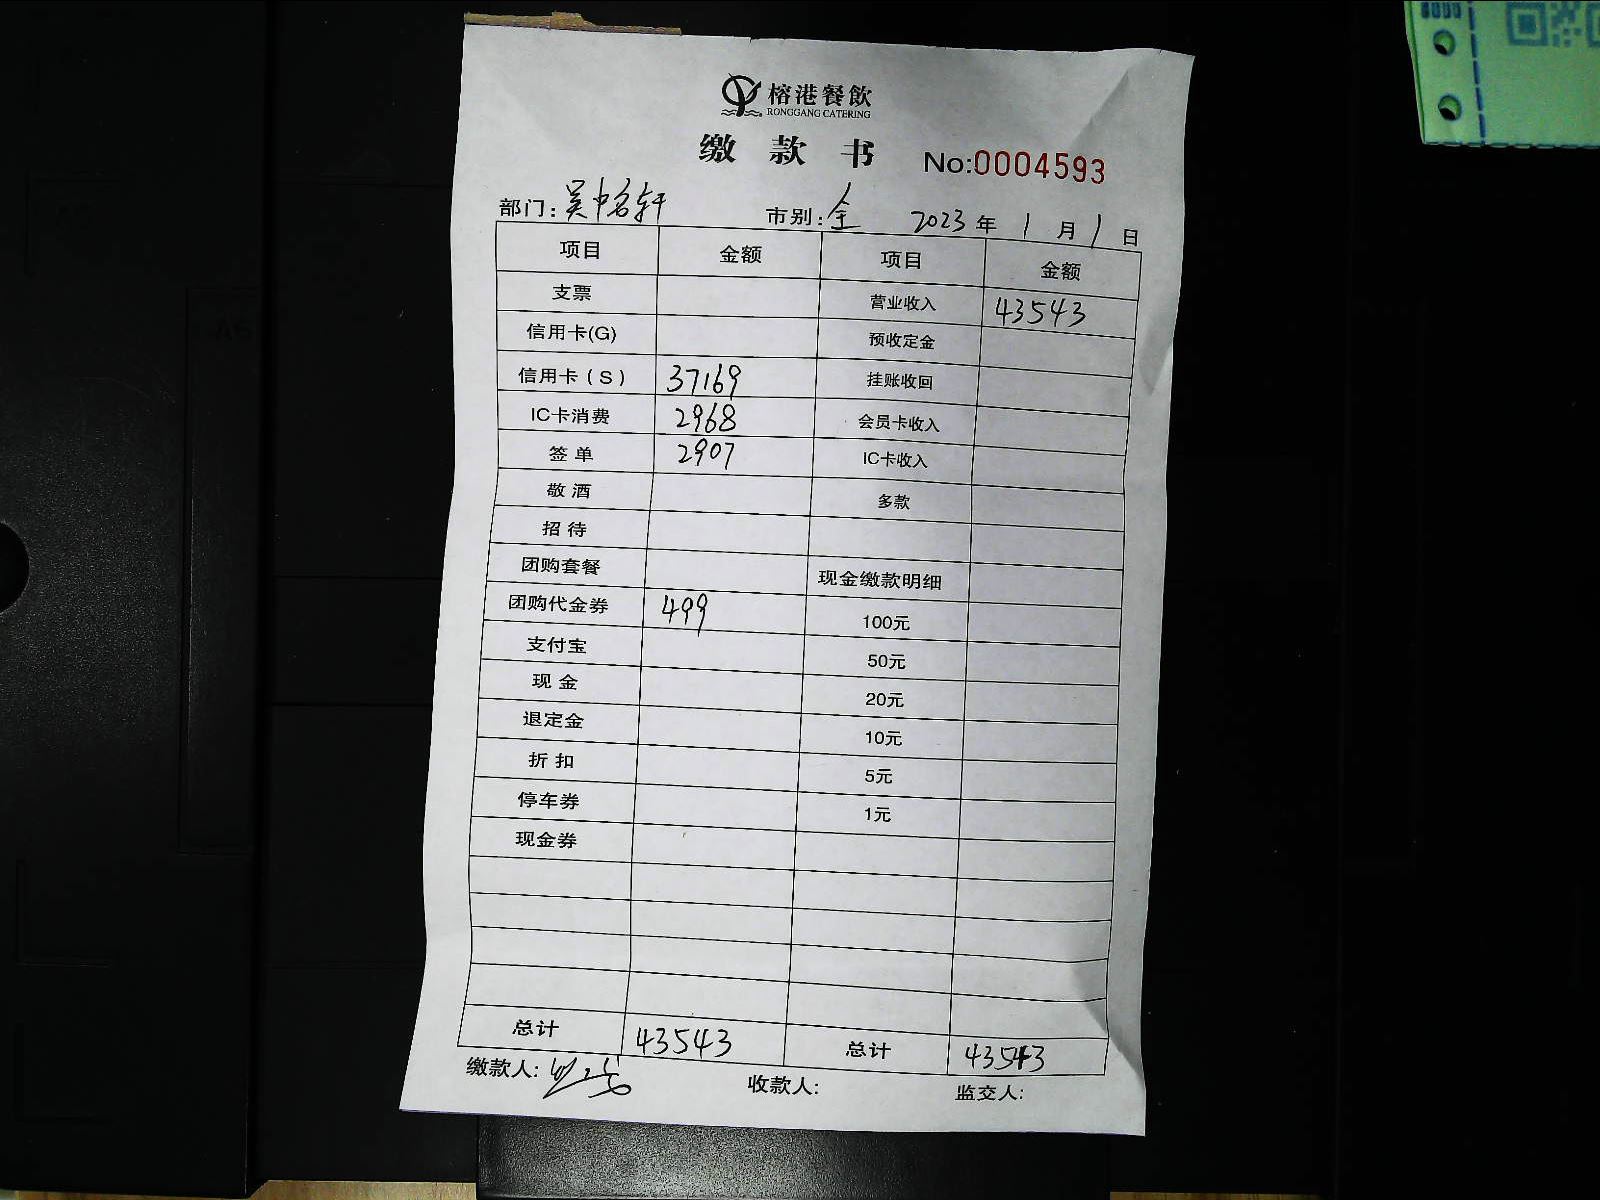 榕港餐飲
RONGGANG CATERING
缴款书 No:0004593
部门: 吴中名轩 市别: 全 2023年1月1日
项目 金额 项目 金额
支票 营业收入 43543
信用卡(G) 预收定金
信用卡(S) 37169 挂账收回
IC卡消费 2968 会员卡收入
签单 2907 IC卡收入
敬酒 多款
招待
团购套餐 现金缴款明细
团购代金券 499 100元
支付宝 50元
现金 20元
退定金 10元
折扣 5元
停车券 1元
现金券
总计 43543 总计 43543
缴款人: 收款人: 监交人: